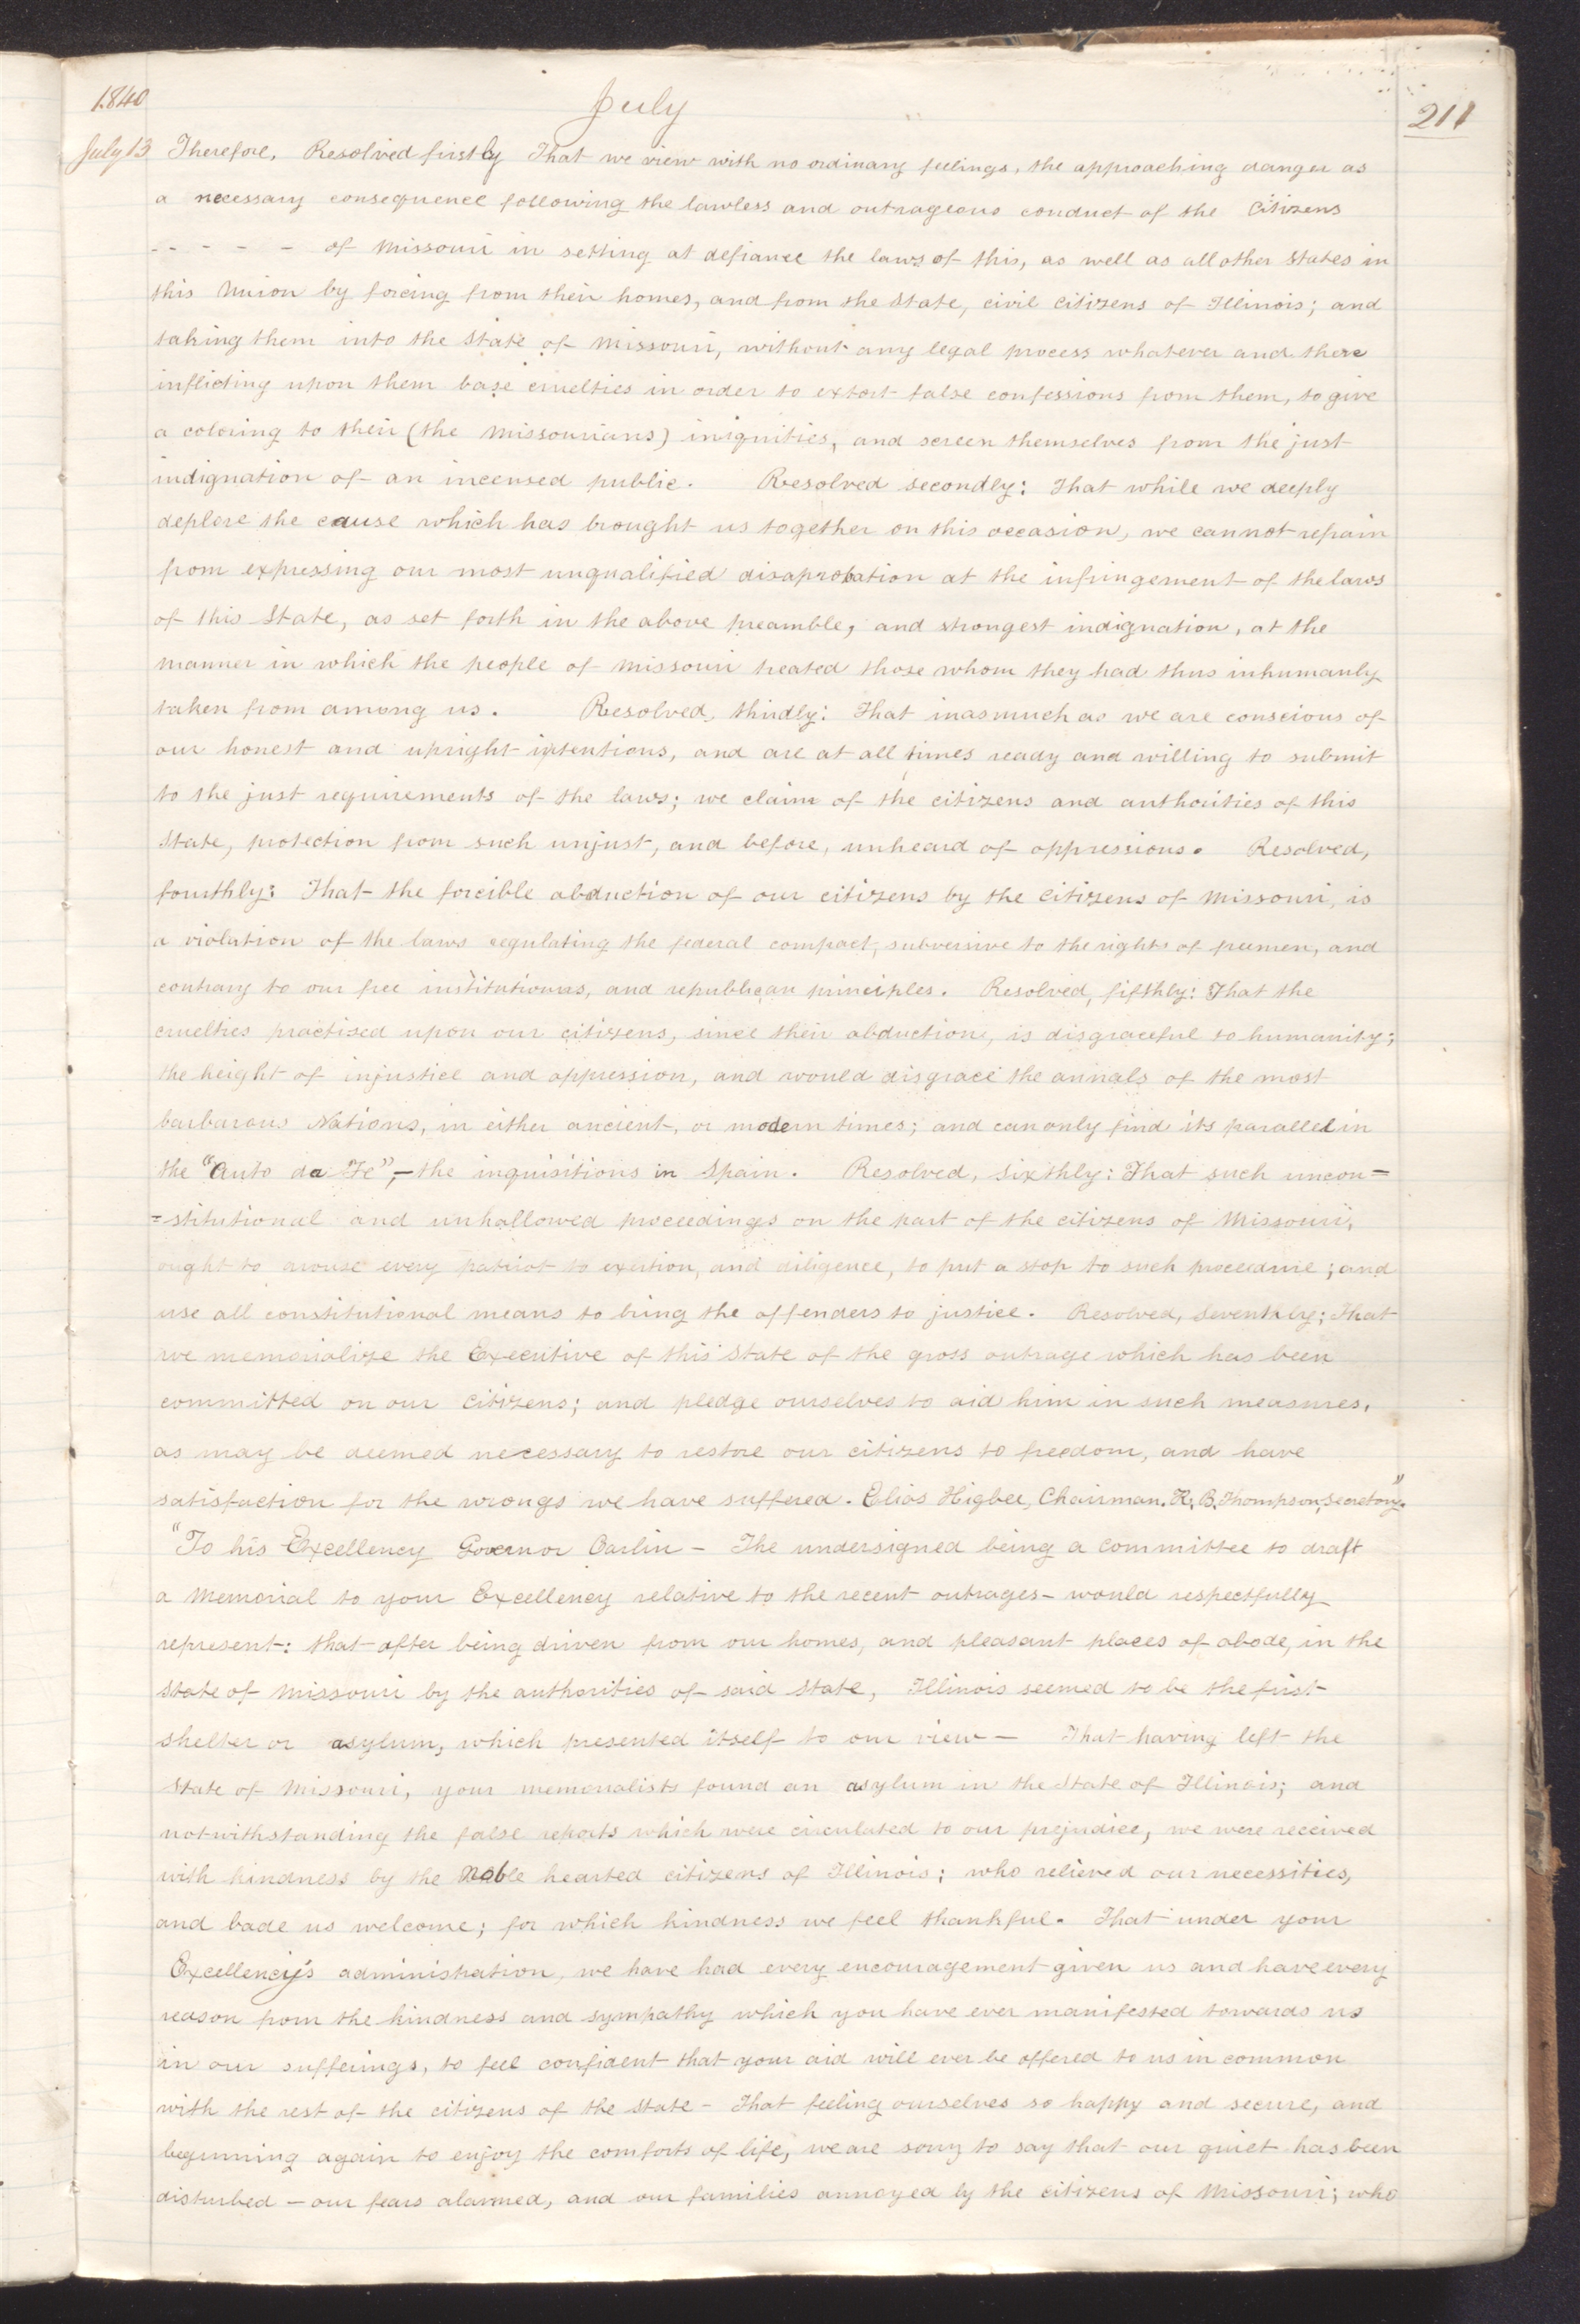 1840
July
211
July 13 Therefore, Resolved firstly That we view with no ordinary feelings, the approaching danger as
a necessary consequence following the lawless and outrageous conduct of the Citizens
- - - - - of Missouri in setting at defiance the laws of this, as well as all other States in
this Union by forcing from their homes, and from the State, civil citizens of Illinois; and
taking them into the State of Missouri, without any legal process whatever and there
inflicting upon them base cruelties in order to extort false confessions from them, to give
a coloring to their (the Missourians) iniquities, and screen themselves from the just
indignation of an incensed public. Resolved secondly: That while we deeply
deplore the cause which has brought us together on this occasion, we cannot refrain
from expressing our most unqualified disaprobation at the infringement of the laws
of this State, as set forth in the above preamble, and strongest indignation, at the
manner in which the people of Missouri treated those whom they had thus inhumanly
taken from among us. Resolved, thirdly: That inasmuch as we are conscious of
our honest and upright intentions, and are at all times ready and willing to submit
to the just requirements of the laws; we claim of the citizens and authorities of this
State, protection from such unjust, and before, unheard of oppressions. Resolved,
fourthly: That the forcible abduction of our citizens by the citizens of Missouri, is
a violation of the laws regulating the federal compact, subversive to the rights of freemen, and
contrary to our free institutions, and republican principles. Resolved, fifthly: That the
cruelties practised upon our citizens, since their abduction, is disgraceful to humanity;
the height of injustice and oppression, and would disgrace the annals of the most
barbarous Nations, in either ancient, or modern times; and can only find its parallel in
the "Auto da Fe",- the inquisitions in Spain. Resolved, Sixthly: That such uncon=
=stitutional and unhallowed proceedings on the part of the citizens of Missouri,
ought to arouse every patriot to exertion, and diligence, to put a stop to such procedure; and
use all constitutional means to bring the offenders to justice. Resolved, Seventhly; That
we memorialize the Executive of this State of the gross outrage which has been
committed on our Citizens; and pledge ourselves to aid him in such measures,
as may be deemed necessary to restore our citizens to freedom, and have
satisfaction for the wrongs we have suffered. Elias Higbee, Chairman. R. B. Thompson, Secretary."
"To his Excellency Governor Carlin - The undersigned being a committee to draft
a Memorial to your Excellency relative to the recent outrages - would respectfully
represent: that after being driven from our homes, and pleasant places of abode, in the
State of Missouri by the authorities of said State, Illinois seemed to be the first
shelter or asylum, which presented itself to our view — That having left the
State of Missouri, your memorialists found an asylum in the State of Illinois; and
notwithstanding the false reports which were circulated to our prejudice, we were received
with kindness by the noble hearted citizens of Illinois; who relieved our necessities,
and bade us welcome; for which kindness we feel thankful. That under your
Excellency's administration, we have had every encouragement given us and have every
reason from the kindness and sympathy which you have ever manifested towards us
in our sufferings, to feel confident that your aid will ever be offered to us in common
with the rest of the citizens of the State - That feeling ourselves so happy and secure, and
beginning again to enjoy the comforts of life, we are sorry to say that our quiet has been
disturbed — our fears alarmed, and our families annoyed by the citizens of Missouri; who